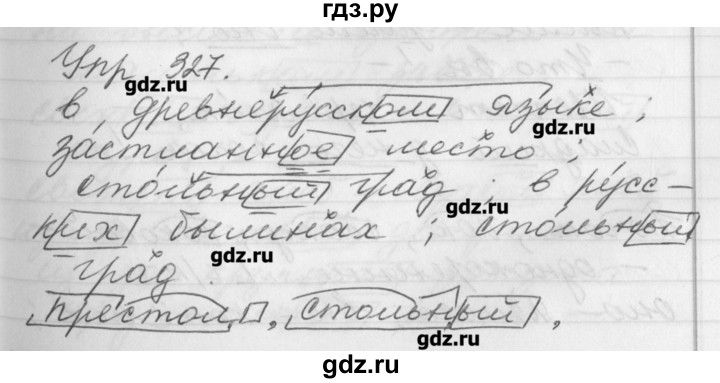 гдз.ру
Упр 327.
gdz.ru
в древнерусском языке ;
gdz.ru
застланное место ;
стольный град . в русс-
gdz.ru
ких былинах ; стольный
gdz.ru
град .
престол , стольный .
gdz.ru
gdz.ru